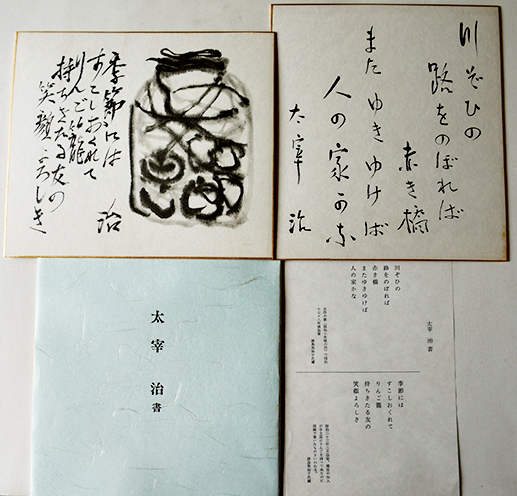 川ぞひの
路をのぼれば
赤き橋
またゆきゆけば
人の家かな
太宰治
季節には
すこしおくれて
りんご籠
持ちきたる友の
笑顔よろしき
治
太宰治書
太宰治書
川ぞひの
路をのぼれば
赤き橋
またゆきゆけば
人の家かな
季節には
すこしおくれて
りんご籠
持ちきたる友の
笑顔よろしき